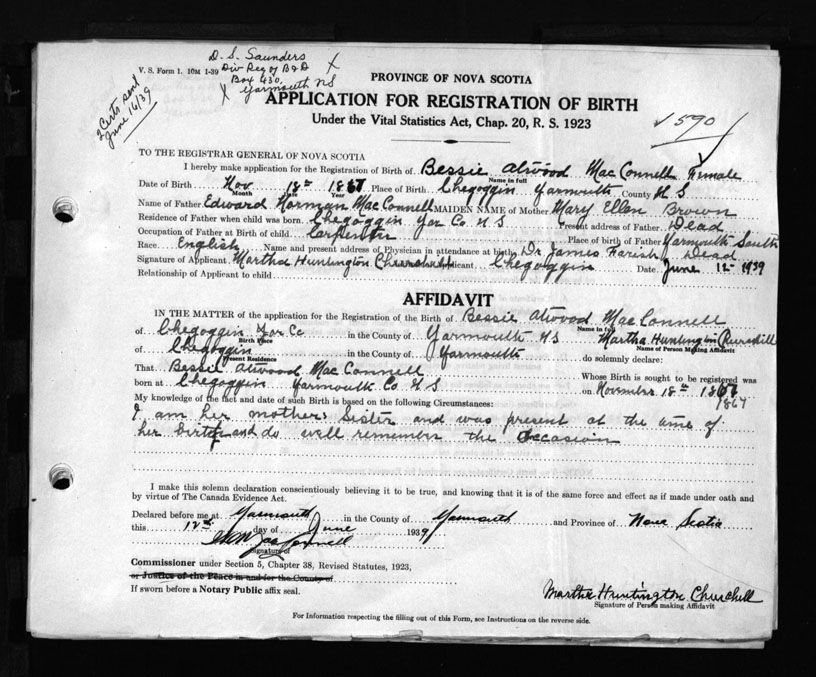 D. S. Saunders
V. S. Form 1. 10M 1-39 Div Reg of B & D X
Box 430,
X Yarmouth NS
2 Certs sent
June 16/39
PROVINCE OF NOVA SCOTIA
APPLICATION FOR REGISTRATION OF BIRTH
Under the Vital Statistics Act, Chap. 20, R. S. 1923
✓ 590
TO THE REGISTRAR GENERAL OF NOVA SCOTIA
I hereby make application for the Registration of Birth of Bessie Atwood Mac Connell Female
Name in full
Date of Birth Nov 18th 1867 Place of Birth Chegoggin Yarmouth County N S
Month Date Year
Name of Father Edward Norman Mac Connell MAIDEN NAME of Mother Mary Ellen Brown
Residence of Father when child was born Chegoggin Yar Co. N S Present address of Father Dead
Occupation of Father at Birth of child Carpenter Place of birth of Father Yarmouth South
Race English Name and present address of Physician in attendance at birth Dr James Farish Dead
Signature of Applicant Martha Huntington Churchill Applicant Chegoggin Date June 12th 1939
Relationship of Applicant to child
AFFIDAVIT
IN THE MATTER of the application for the Registration of the Birth of Bessie Atwood Mac Connell
Name in full
of Chegoggin Yar Co in the County of Yarmouth NS Martha Huntington Churchill
Birth Place Name of Person Making Affidavit
of Chegoggin in the County of Yarmouth do solemnly declare:
Present Residence
That Bessie Atwood Mac Connell Whose Birth is sought to be registered was
born at Chegoggin Yarmouth Co. N S on November 18th 1867
1867
My knowledge of the fact and date of such Birth is based on the following Circumstances:
I am her mothers Sister and was present at the time of
her birth and do well remember the Occasion
I make this solemn declaration conscientiously believing it to be true, and knowing that it is of the same force and effect as if made under oath and
by virtue of The Canada Evidence Act.
Declared before me at Yarmouth in the County of Yarmouth and Province of Nova Scotia
this 12th day of June 1939
Mac Connell
Signature of
Commissioner under Section 5, Chapter 38, Revised Statutes, 1923,
or Justice of the Peace in and for the County of
If sworn before a Notary Public affix seal.
Martha Huntington Churchill
Signature of Person making Affidavit
For Information respecting the filling out of this Form, see Instructions on the reverse side.